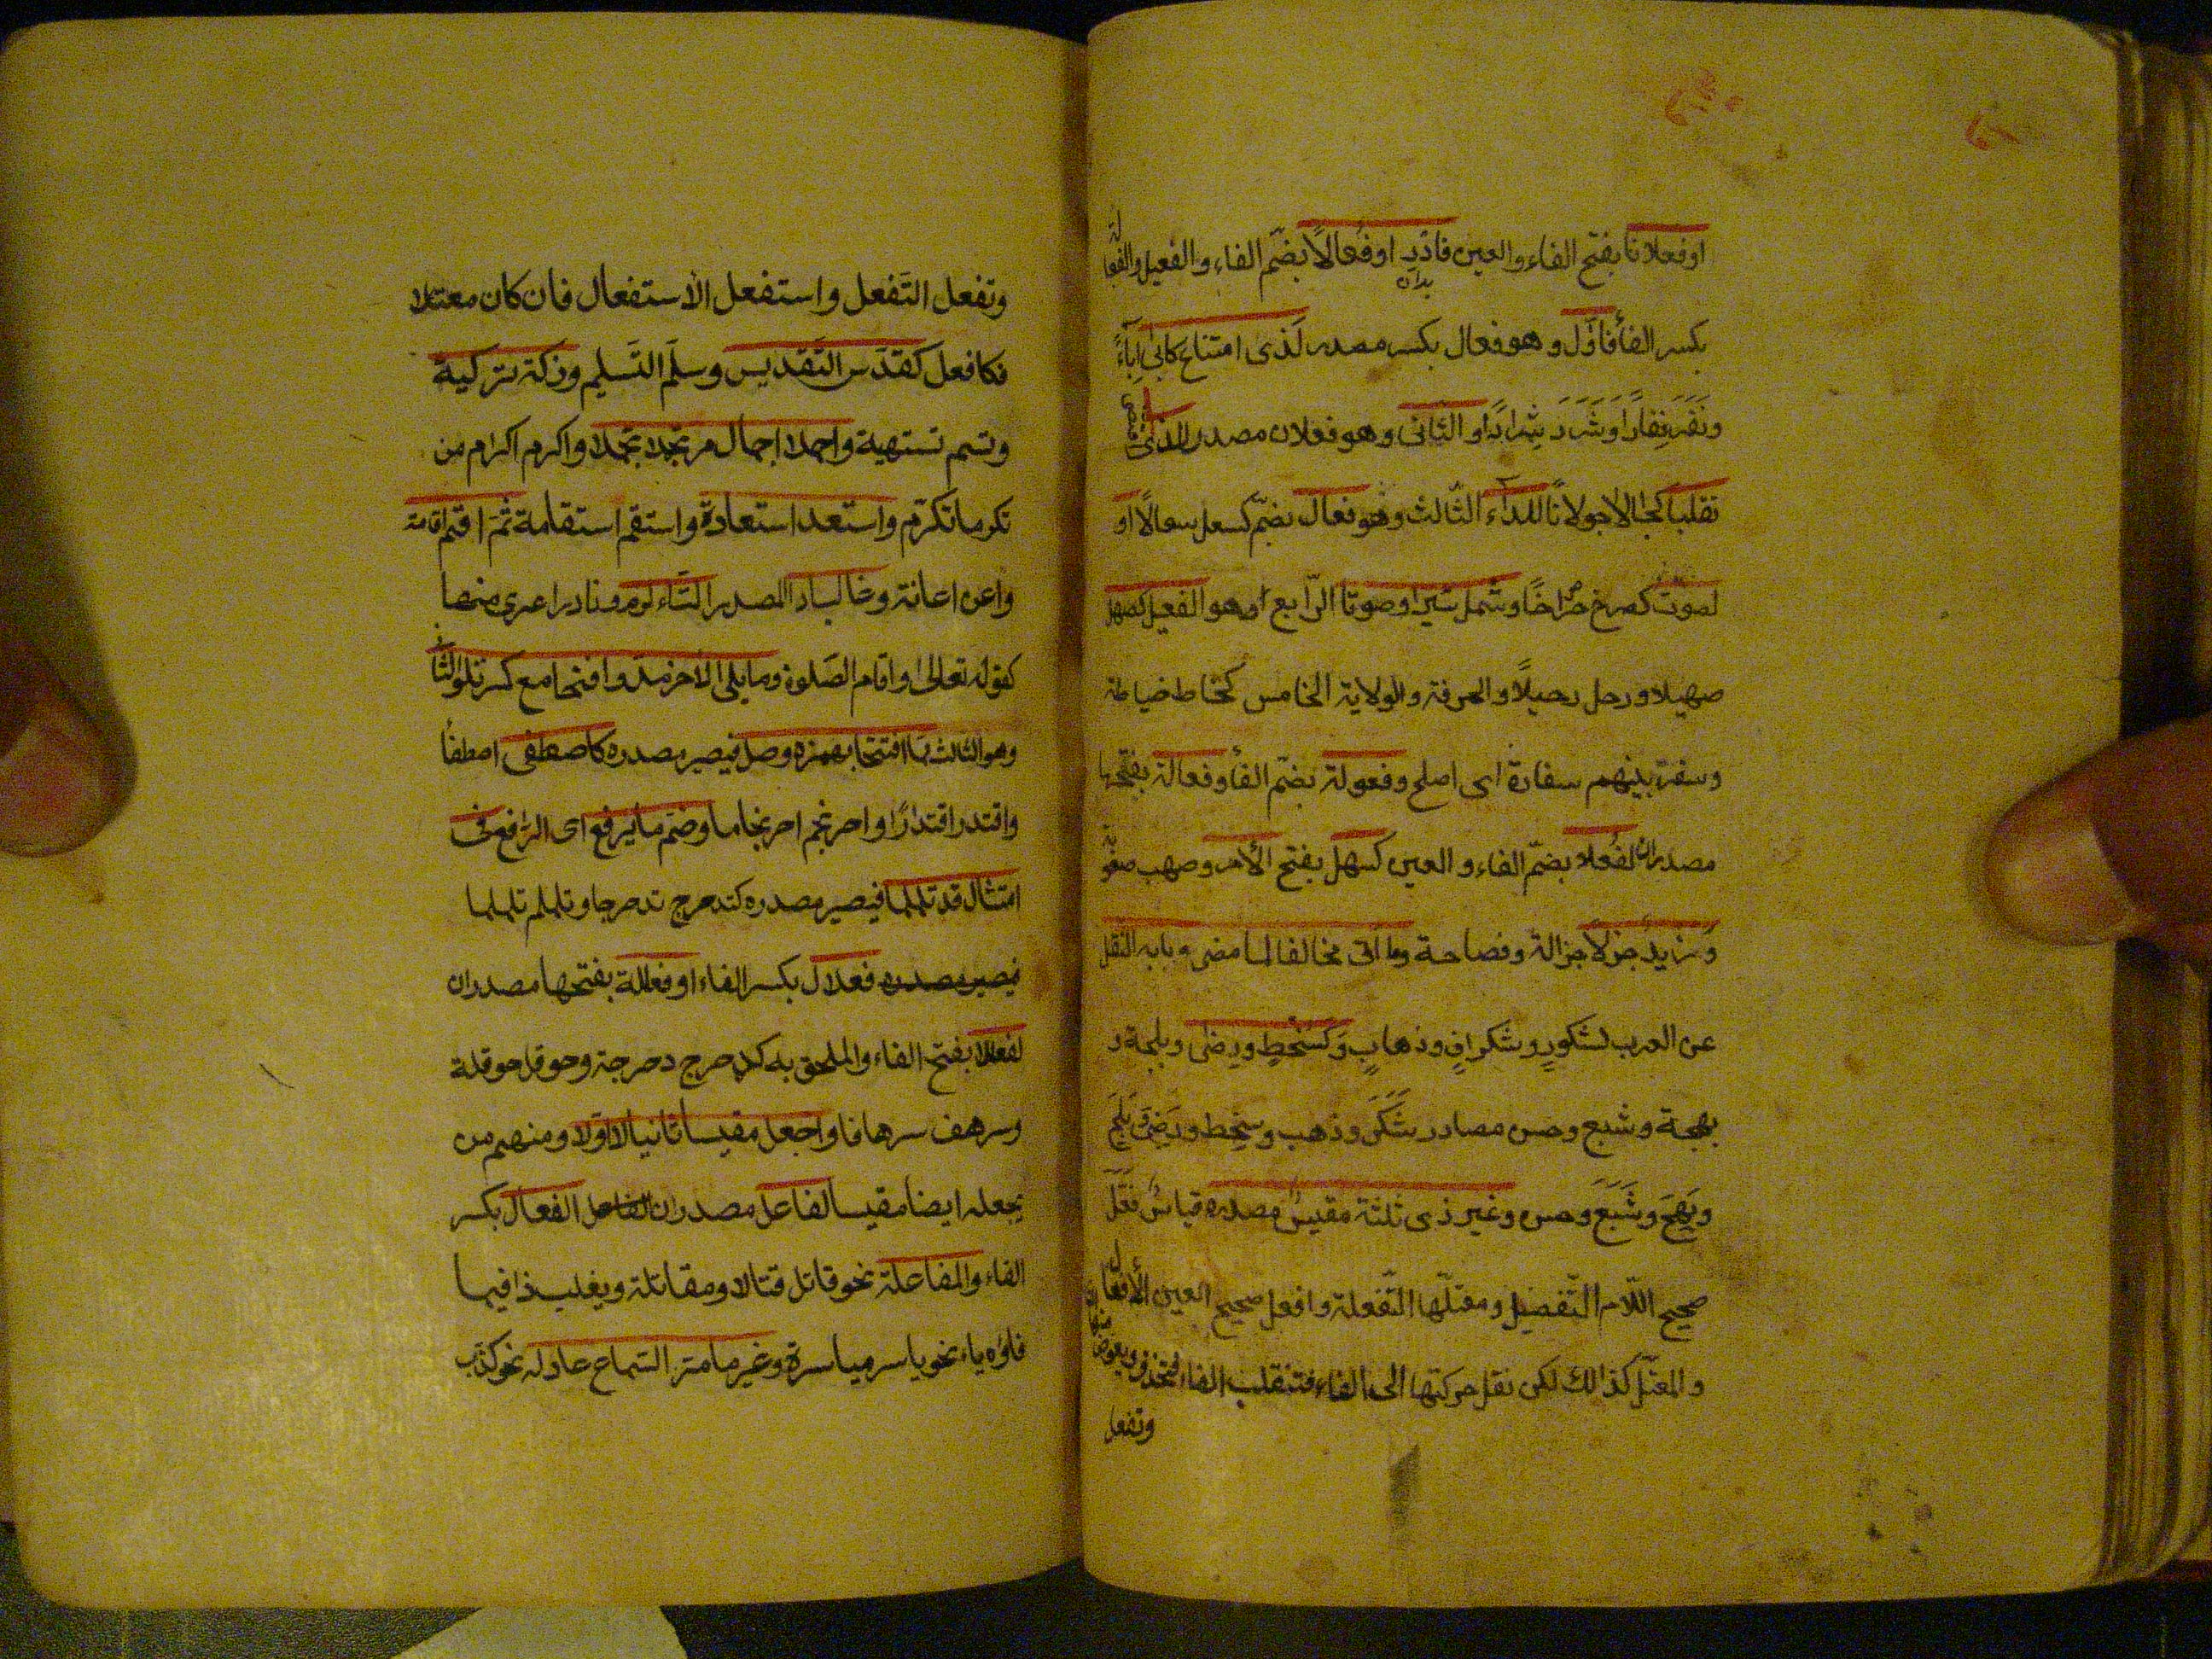 او فعلانا بفتح الفاء والعين فادّرِ او فُعالًا بضمّ الفاء والفعيل والفعالة
بكسر الفأ فاوّل وهو فعال بكسر مصدر لذى امتناع كابٰى اِباءً
ونَفَرَ نِفارًا وشَرَدَ شِرادًا والثانى وهو فعلان مصدر للذى
تقلبا كجال جولانًا للدآء الثّالث وهو فعال بضمّ كسعل سعالًا او
لصوت كصرخ صُراخًا وشمل سيرا وصوتا الرّابع وهو الفعيل كصهل
صهيلا ورحل رحيلًا والحرفة والولاية الخامس كخاط خياطة
وسفر بينهم سفارة اى اصلح وفعولة بضمّ الفأ وفعالة بفتحها
مصدران لفُعلا بضمّ الفاء والعين كسهل بفتح الأمر وصهب صعوبة
وَزيدٌ جزلا جزالة وفصاحة وما اتى مخالفا لما مضى وبابه النّقل
عن العرب كشكورٍ وشكرانٍ وذهابٍ وكسُخطٍ ورضٰى وبلجة و
بهجة وشبع وحسن مصادر شَكَرَ وذهب وسخط ورَضِىَ وبَلَجَ
وبَهَجَ وشَبَعَ وحسن وغير ذى ثلثة مقيسُ مصدره قياس فعّلَ
صحيح اللّام التّفعيل ومعتلّها التّفعلة وافعل صحيح العين الأفعال
والمعتلّ كذالك لكن نقل حركتها الى الفاء فتنقلب الفاء فتحذف ويعوض
وتفعل
وتفعل التّفعل واستفعل الأستفعال فان كان معتلا
فكافعل كقدّس التّقديس وسلّم التّسليم وزكّه تزكية
وتسم تسمية واجملا اجمال من تجملا تجملا واكرم اكرام من
تكرما تكرّم واستعد استعاذة واستقم استقامة ثمّ اقم اقامة
واعن اعانة وغالبا ذا المصدر التّاء لزم ونادرا عرى منها
كقوله تعالى واقام الصّلوة وما يلى الأخر مدّ وافتحا مع كسر تلو الثّا
وهو الثالث ممّا افتتحا بهمزه وصل فيصير مصدره كاصطفى اصطفأ
واقتدر اقتدارًا واحرنجم احرنجاما وضمّ ما يربع اى الرّابع فى
امثال قد تلملما فيصير مصدره كتدحرج تدحرجا وتلملم تلملما
فيصير مصدره فعلال بكسر الفاء او فعللة بفتحها مصدران
لفعللا بفتح الفاء والملحق به كدحرج دحرجة وحوقل حوقلة
وسرهف سرهافا واجعل مقيسا ثانيا لا اوّلا ومنهم من
يجعله ايضا مقيسا لفاعل مصدران الفعال بكسر
الفاء والمفاعلة نحو قاتل قتالا ومقاتلة ويغلب ذا فيما
فاؤه ياء نحو ياسر مياسرة وغير ما مرّ السّماع عادله نحو كذّب